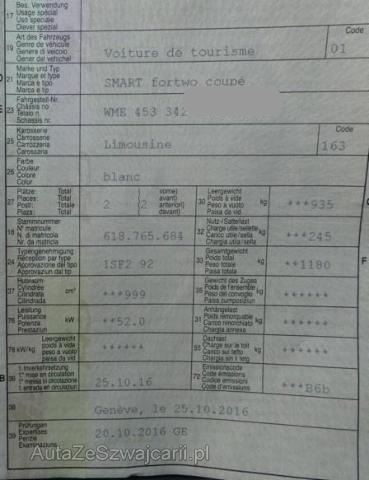 Bes. Verwendung
17 Usage spécial
Uso speciale
Diever spezial
Code
Art des Fahrzeugs
19 Genre de véhicule
Genere di veicolo
Gener dal vehichel
Voiture de tourisme
01
Marke und Typ
21 Marque et type
Marca e tipo
Marca e tip
SMART fortwo coupe
Fahrgestell-Nr.
23 Châssis no
Telaio n.
Schassis nr.
WME 453 342
Karosserie
25 Carrosserie
Carrozzeria
Carossaria
Limousine
Code
163
Farbe
26 Couleur
Colore
Colur
blanc
Plätze: Total vorne)
27 Places: Total avant)
Posti: Totale anteriori)
Plazs: Total davant)
2 (2
Leergewicht
30 Poids à vide kg
Peso a vuoto
Paisa da vid
***935
Stammnummer
18 N° matricule
N. di matricola
Nr. da matricla
618.765.684
Nutz-/Sattellast
32 Charge utile/sellette kg
Carico utile/sella
Chargia utila/sella
***245
Typengenehmigung
24 Réception par type
Approvazione del tipo
Approvaziun dal tip
1SF2 92
Gesamtgewicht
33 Poids total kg
Peso totale
Paisa totala
**1180
F
Hubraum
37 Cylindrée cm³
Cilindrata
Cilindrada
***999
Gewicht des Zuges
35 Poids de l'ensemble kg
Peso del convoglio
Paisa cumposiziun
******
Leistung
76 Puissance kW
Potenza
Prestaziun
**52.0
Anhängelast
31 Poids remorquable kg
Carico rimorchiato
Chargia annexa
******
Leergewicht
78 kW/kg poids à vide
peso a vuoto
paisa da vid
******
Dachlast
55 Charge sur le toit kg
Carico sul tetto
Chargia sin il tetg
******
B
1. Inverkehrsetzung
36 1re mise en circulation
1a messa in circolazione
1. entrada en circulaziun
25.10.16
Emissionscode
72 Code émissions
Codice emissioni
Code d'emissiuns
***B6b
38
Genève, le 25.10.2016
Prüfungen
39 Expertises
Perizie
Examinaziuns
20.10.2016 GE
AutaZeSzwajcarii.pl